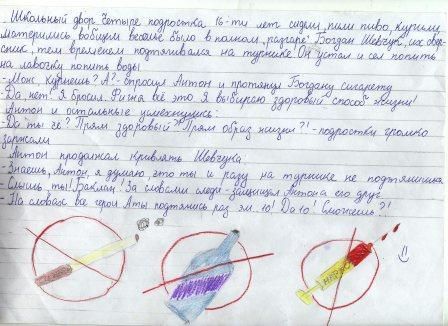 Школьный двор. Четыре подростка 16-ти лет сидели, пили пиво, курили,
матерились, вобщем веселье было в полном разгаре! Богдан Шевчук, их сверстник,
тем временем подтягивался на турнике. Он устал и сел попить
на лавочку попить воды.
-Мож, курнёшь? А? - спросил Антон и протянул Богдану сигарету
-Да нет! Я бросил. Фигня всё это Я выбираю здоровый способ жизни!
Антон и остальные усмехнулись:
-Да ты чё? Прям здоровый? Прям образ жизни?! - подростки громко
заржали
Антон продолжал кривлять Шевчука
-Знаешь, Антон, я думаю, это ты и разу на турнике не подтянишся
-Слышь, ты! Баклан! За словами следи - заступился Антона его друг
-На словах все герои А ты подтянись раз эм..10! Да 10! Сможешь?!
НАРКО